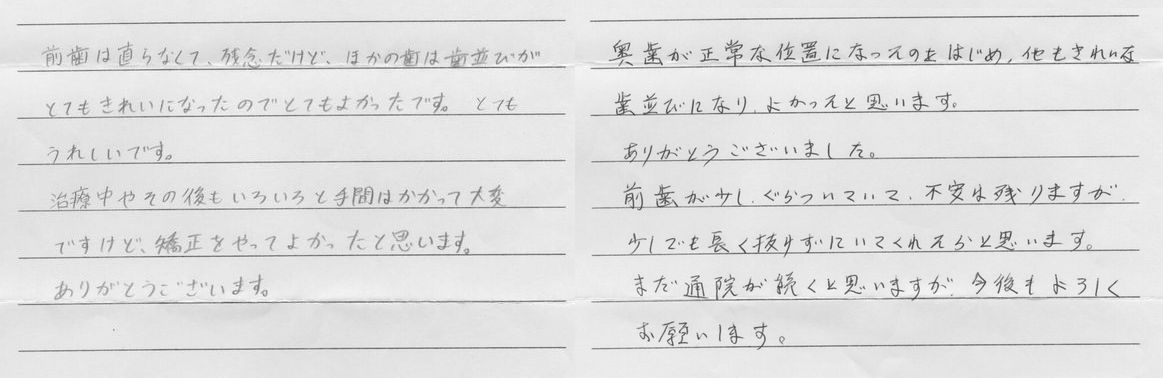 前歯は直らなくて、残念だけど、ほかの歯は歯並びが
とてもきれいになったのでとてもよかったです。 とても
うれしいです。
治療中やその後もいろいろと手間はかかって大変
ですけど、矯正をやってよかったと思います。
ありがとうございます。
奥歯が正常な位置になったのをはじめ、他もきれいな
歯並びになり、よかったと思います。
ありがとうございました。
前歯が少し、ぐらついていて、不安は残りますが、
少しでも長く抜けずにいてくれたらと思います。
まだ通院が続くと思いますが、今後もよろしく
お願いします。